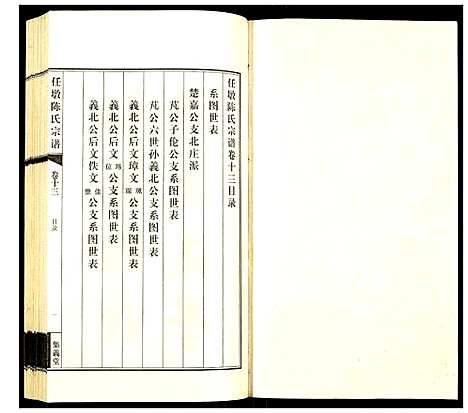 任墩陈氏宗谱卷十三目录
系图世表
楚嘉公支北庄派
芃公子伦公支系图世表
芃公六世孙義北公支系图世表
義北公后文璋文珮琛公支系图世表
義北公后文玮位公支系图世表
義北公后文佚文佳公支系图世表
任墩陈氏宗谱
卷十三
目录
一
聚義堂